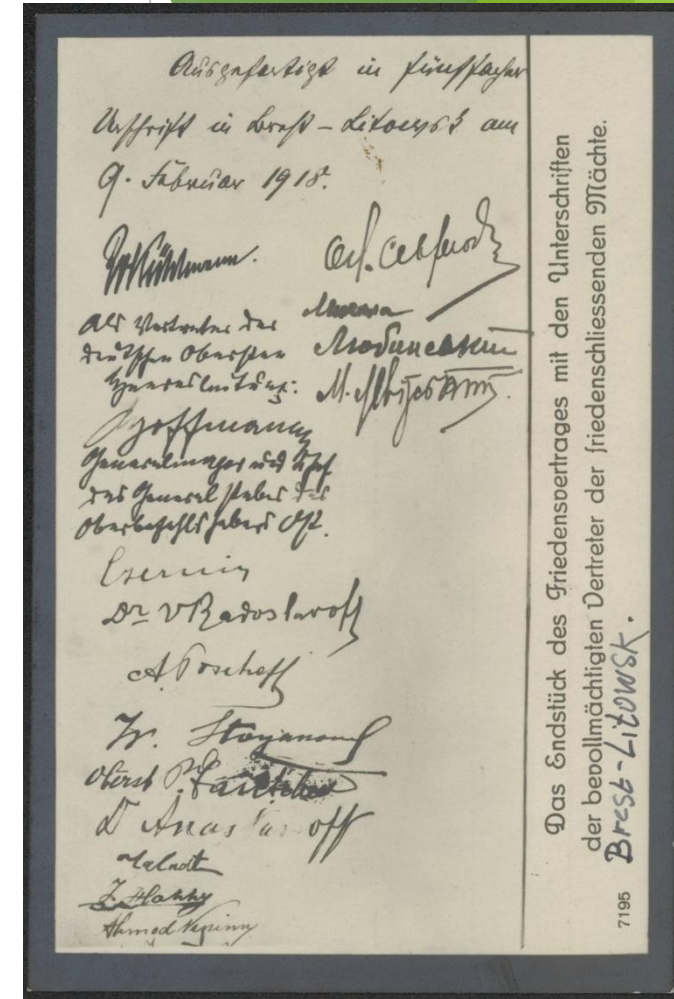 Ausgefertigt in fünffacher
Urschrift in Brest-Litowsk am
9. Februar 1918.
Kühlmann.
Als Vertreter der
deutschen Obersten
Heeresleitung:
Hoffmann
Generalmajor und Chef
des Generalstabes des
Oberbefehlshabers Ost.
Czernin
Dr. V Radoslawoff
A Toscheff
Iv. Stoyanovich
Oberst P.
Dr Anastassoff
Talaat
I. Hakky
Ahmed Nessimy
Ol. Севрюк
Микола
Любинський
М. Левитський.
Das Endstück des Friedensvertrages mit den Unterschriften
der bevollmächtigten Vertreter der friedenschliessenden Mächte.
Brest-Litowsk.
7195